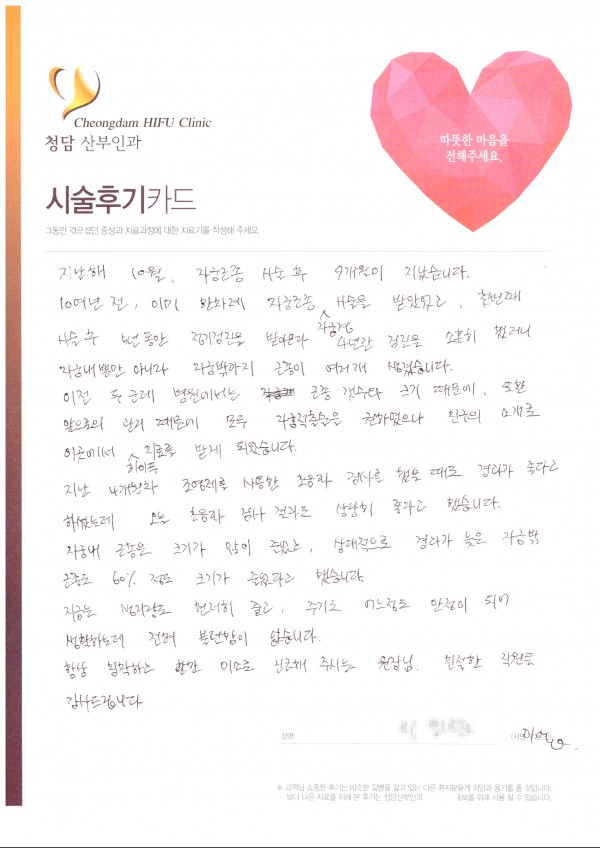 Cheongdam HIFU Clinic
청담 산부인과
따뜻한 마음을
전해주세요.
시술후기카드
그동안 겪으셨던 증상과 치료과정에 대한 치료기를 작성해 주세요.
지난해 10월, 자궁근종 시술 후 9개월이 지났습니다.
10여년 전, 이미 한차례 자궁근종 시술을 받았었고, 첫번째
시술 후 년동안 정기검진을 받아오다 4년간 검진을 소홀히 했더니
자궁내뿐만 아니라 자궁밖까지 근종이 여러개 생겼습니다.
이전 두 군데 병원에서는 근종 갯수와 크기 때문에, 또한
앞으로의 관리 때문에 모두 자궁적출술을 권하였으나 친구의 소개로
이곳에서 하이푸 치료를 받게 되었습니다.
지난 4개월차 조영제를 사용한 초음파 검사를 했을 때도 경과가 좋다고
하셨는데 오늘 초음파 검사 결과도 상당히 좋다고 했습니다.
자궁내 근종은 크기가 많이 줄었고, 상대적으로 경과가 늦은 자궁밖
근종도 60% 정도 크기가 줄었다고 했습니다.
지금은 생리량도 현저히 줄고, 주기도 어느정도 안정이 되어
생활하는데 전혀 불편함이 없습니다.
항상 환한 미소로 진료해 주시는 원장님, 친절한 직원들
감사드립니다
성명
※ 고객님 소중한 후기는 비슷한 질병을 앓고 있는 다른 환자분들께 희망과 용기를 줄 것입니다.
보다 나은 치료를 위해 본 후기는 청담산부인과 홍보를 위해 사용 될 수 있습니다.